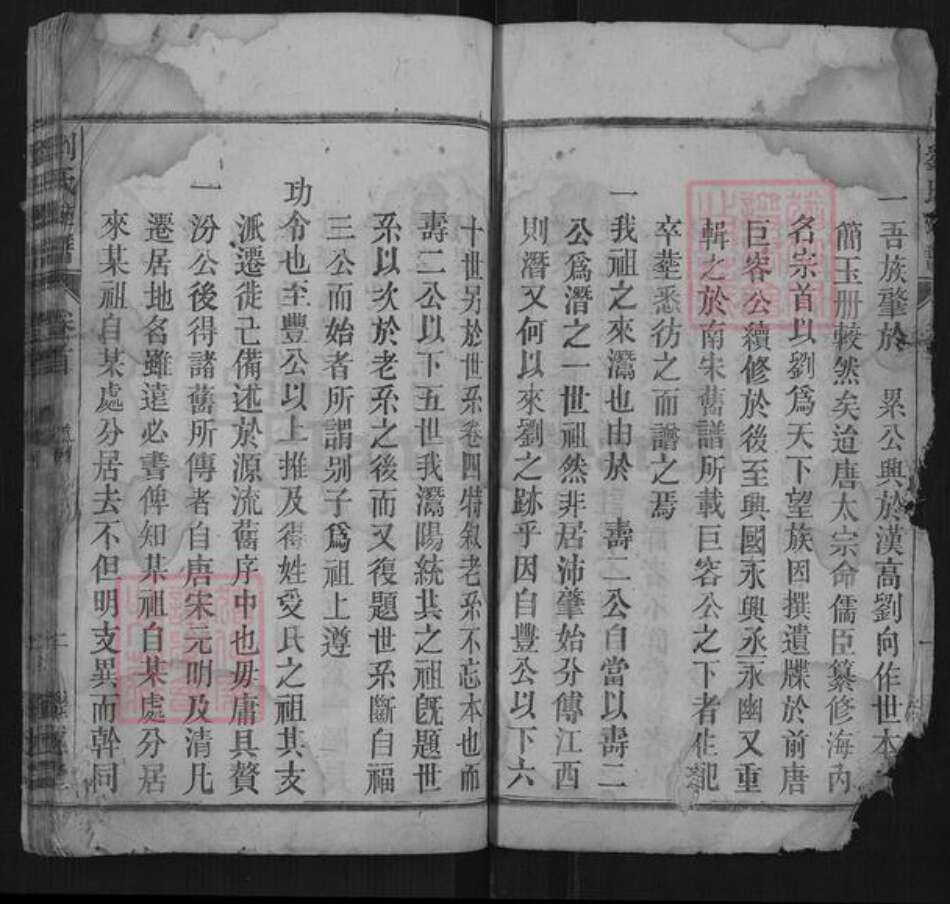 一吾族肇於　累公興於漢高劉向作世本
簡玉册較然矣迨唐太宗命儒臣纂修海內
名宗首以劉爲天下望族因撰遺牒於前唐
巨容公續修於後至興國永興丞永幽又重
輯之於南宋舊譜所載巨容公之下者生配
卒塟悉彷之而譜之焉
一我祖之來灊也由於　壽二公自當以壽二
公爲潛之一世祖然非居沛肇始分傳江西
則潛又何以來劉之跡乎因自豐公以下六
十世另於世系卷四特叙老系不忘本也而
壽二公以下五世我灊陽統其之祖旣題世
系以次於老系之後而又復題世系斷自福
三公而始者所謂别子爲祖上遵
功令也至豐公以上推及得姓受氏之祖其支
派遷徙己備述於源流舊序中也毋庸具贅
一汾公後得諸舊所傳者自唐宋元明及清凡
遷居地名雖遠必書俾知某祖自某處分居
來某祖自某處分居去不但明支異而幹同
劉氏
卷首
二